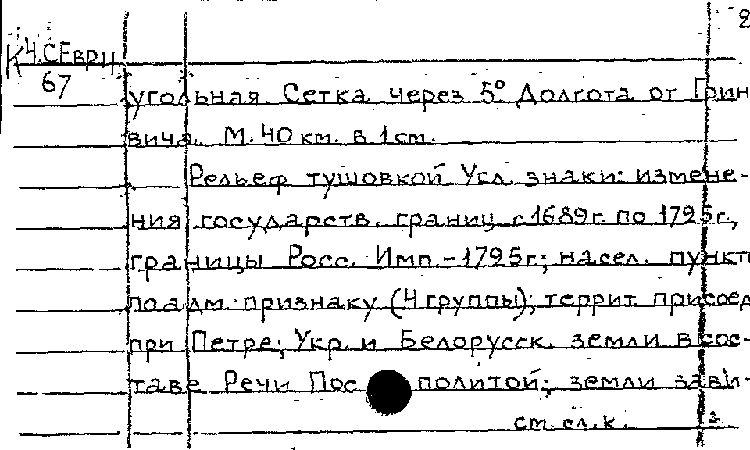 2
К Ч.СЕвРЧ
67
угольная. Сетка через 5° Долгота от Грин
вича. М. 40 км. в 1 см.
Рельеф тушовкой Усл. знаки: измене-
ния государств. границ с 1689г. по 1795г.,
границы Росс. Имп. - 1795г.; насел. пункты
по адм. признаку (4 группы); террит. присоед
при Петре; Укр. и Белорусск. земли в сос-
таве Речи Посполитой; земли зави-
см. сл. к.